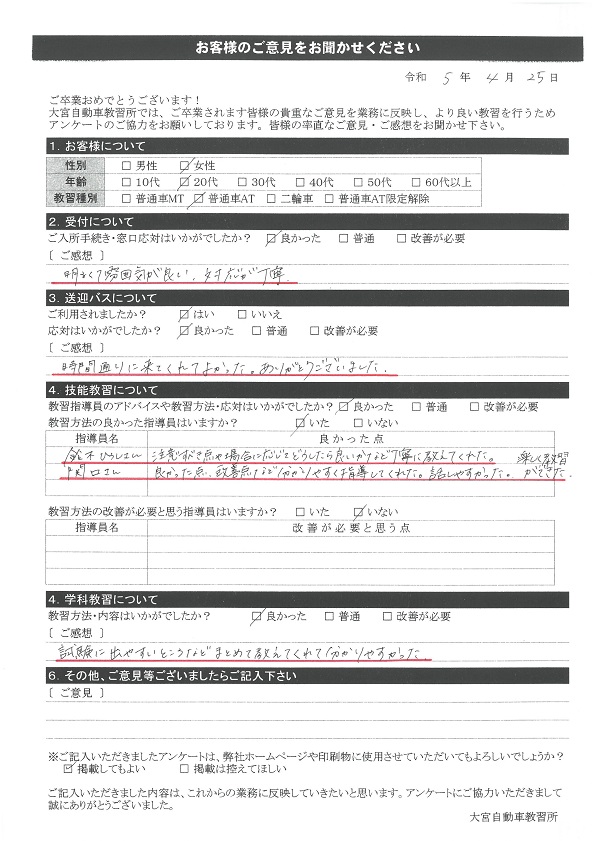 お客様のご意見をお聞かせください
令和 5 年 4 月 25 日
ご卒業おめでとうございます！
大宮自動車教習所では、ご卒業されます皆様の貴重なご意見を業務に反映し、より良い教習を行うため
アンケートのご協力をお願いしております。皆様の率直なご意見・ご感想をお聞かせ下さい。
1. お客様について
性別 □ 男性 ☑ 女性
年齢 □ 10代 ☑ 20代 □ 30代 □ 40代 □ 50代 □ 60代以上
教習種別 □ 普通車MT ☑ 普通車AT □ 二輪車 □ 普通車AT限定解除
2. 受付について
ご入所手続き・窓口応対はいかがでしたか？ ☑ 良かった □ 普通 □ 改善が必要
〔 ご感想 〕
明るくて雰囲気が良い、対応が丁寧
3. 送迎バスについて
ご利用されましたか？ ☑ はい □ いいえ
応対はいかがでしたか？ ☑ 良かった □ 普通 □ 改善が必要
〔 ご感想 〕
時間通りに来てくれてよかった。ありがとうございました。
4. 技能教習について
教習指導員のアドバイスや教習方法・応対はいかがでしたか？ ☑ 良かった □ 普通 □ 改善が必要
教習方法の良かった指導員はいますか？ ☑ いた □ いない
指導員名 良かった点
鈴木ひろしさん 注意すべき点や場合に応じてどうしたら良いかなど丁寧に教えてくれた。 楽しく教習
関口さん 良かった点、改善点など分かりやすく指導してくれた。話しやすかった。 ができた。
教習方法の改善が必要と思う指導員はいますか？ □ いた ☑ いない
指導員名 改善が必要と思う点
4. 学科教習について
教習方法・内容はいかがでしたか？ ☑ 良かった □ 普通 □ 改善が必要
〔 ご感想 〕
試験に出やすいところなどまとめて教えてくれて分かりやすかった
6. その他、ご意見等ございましたらご記入下さい
〔 ご意見 〕
※ご記入いただきましたアンケートは、弊社ホームページや印刷物に使用させていただいてもよろしいでしょうか？
☑ 掲載してもよい □ 掲載は控えてほしい
ご記入いただきました内容は、これからの業務に反映していきたいと思います。アンケートにご協力いただきまして
誠にありがとうございました。
大宮自動車教習所